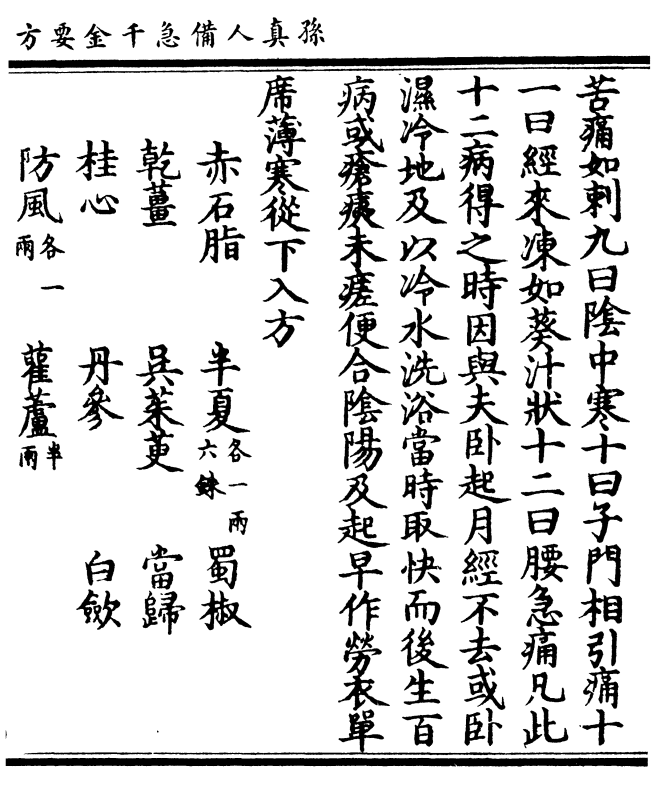 孫真人備急千金要方
苦痛如刺九曰陰中寒十曰子門相引痛十
一曰經來凍如葵汁狀十二曰腰急痛凡此
十二病得之時因與夫卧起月經不去或卧
濕冷地及以冷水洗浴當時取快而後生百
病或瘡痍未瘥便合陰陽及起早作勞衣單
席薄寒從下入方
赤石脂 半夏各一兩六銖 蜀椒
乾薑 吳茱萸 當歸
桂心 丹參 白歛
防風各一兩 雚蘆半兩